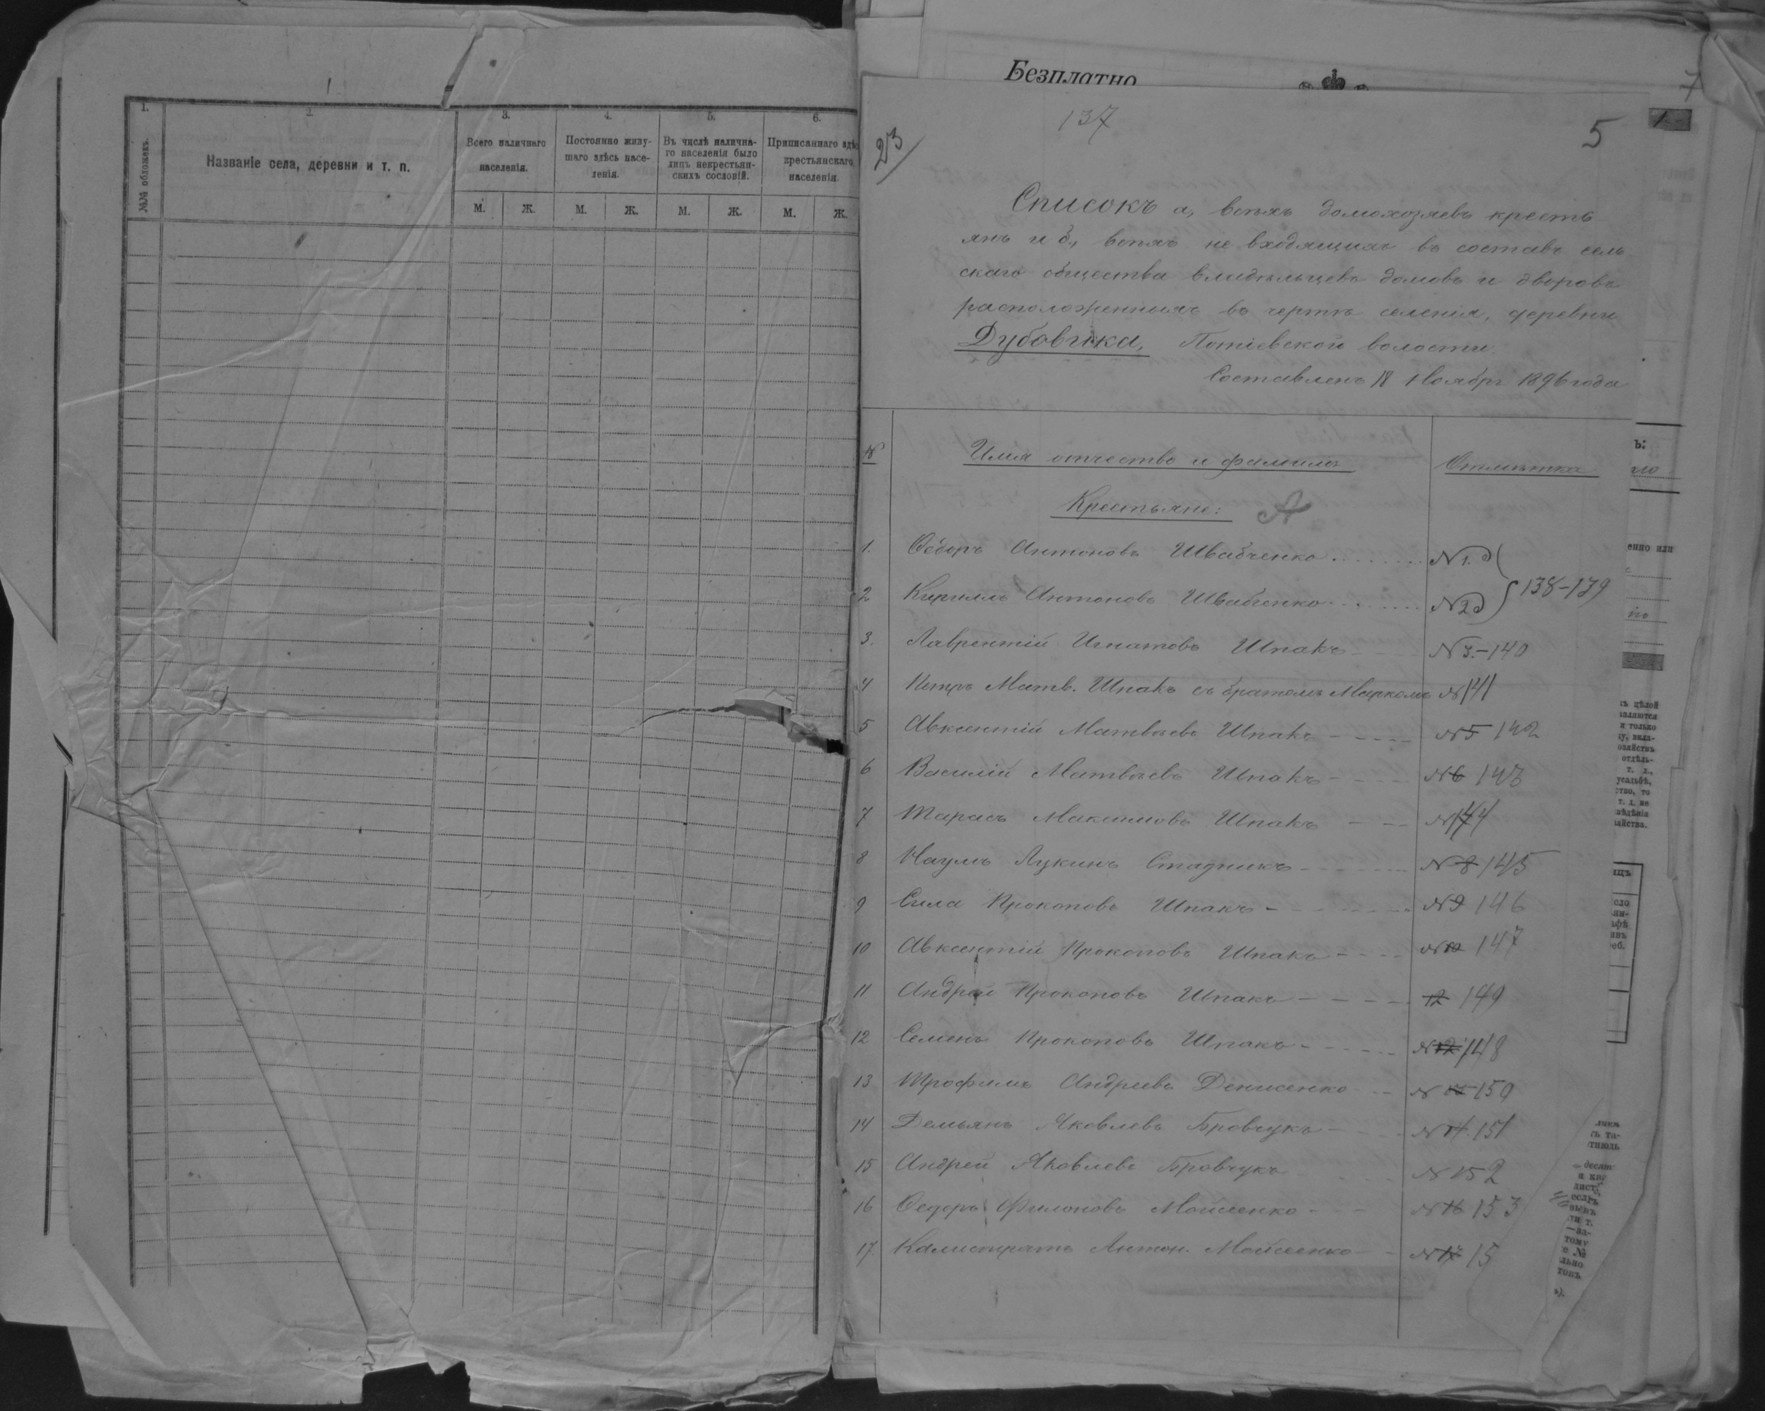 1
1.
2.
3.
4.
5.
6.
№№ обложекъ.
Названіе села, деревни и т. п.
Всего наличнаго
населенія.
Постоянно живу-
щаго здѣсь насе-
ленія.
Въ числѣ налична-
го населенія было
лицъ некрестьян-
скихъ сословій.
Приписаннаго здѣс
крестьянскаго
населенія.
М.
Ж.
М.
Ж.
М.
Ж.
М.
Ж.
Безплатно
7
137
5
23
Списокъ а, всѣхъ домохозяевъ кресть
янъ и б, всѣхъ не входящихъ въ составъ сель
скаго общества владѣльцевъ домовъ и дворовъ
расположенныхъ въ чертѣ селенія, деревни
Дубовика, Потіевской волости.
Составленъ 18 Ноября 1896 года
№ Имя отчество и фамилія Отмѣтка
Крестьяне: А
1. Ѳедоръ Антоновъ Швабченко №1.
2 Кириллъ Антоновъ Швабченко №2 138-139
3. Лаврентій Игнатовъ Шпакъ №3.-140
4 Петръ Матв. Шпакъ съ братомъ Маркомъ № 141
5 Авксентій Матвѣевъ Шпакъ №5 142
6 Василій Матвѣевъ Шпакъ №6 143
7 Тарасъ Максимовъ Шпакъ № 144
8 Наумъ Лукинъ Стадникъ №8 145
9 Сила Прокоповъ Шпакъ №9 146
10 Авксентій Прокоповъ Шпакъ №10 147
11 Андрей Прокоповъ Шпакъ 12 149
12 Семенъ Прокоповъ Шпакъ №12 148
13 Трофимъ Андреевъ Денисенко № 150
14 Демьянъ Яковлевъ Бровчукъ №14. 151
15 Андрей Яковлевъ Бровчукъ №152
16 Ѳедоръ Филоновъ Мойсеенко №16 153
17 Калистратъ Антон. Мойсеенко №17 15